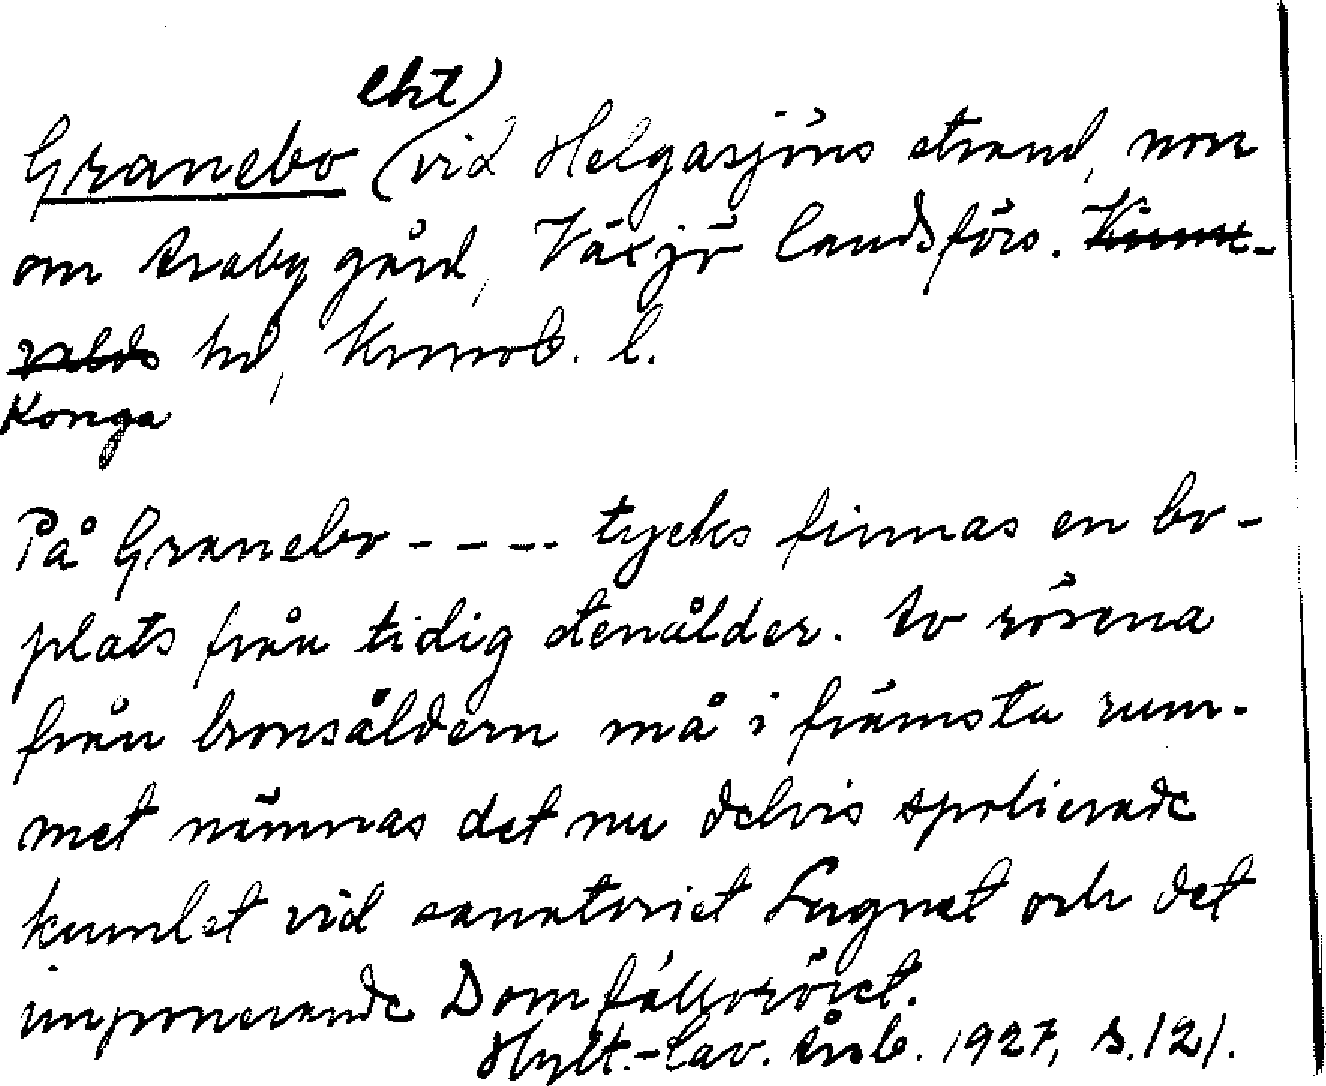 eht)
Granebo (vid Helgasjöns strand, norr
om Araby gård, Växjö landsförs. Kinne-
valds hd, Kronob. l.
Konga
På Granebo - - - -. tycks finnas en bo-
plats från tidig stenålder. Av rösena
från bronsåldern må i främsta rum-
met nämnas det nu delvis spolierade
kumlet vid sanatoriet Lugnet och det
imponerande Domfällororöset.
Hylt.-Cav. Årsb. 1927, s. 121.